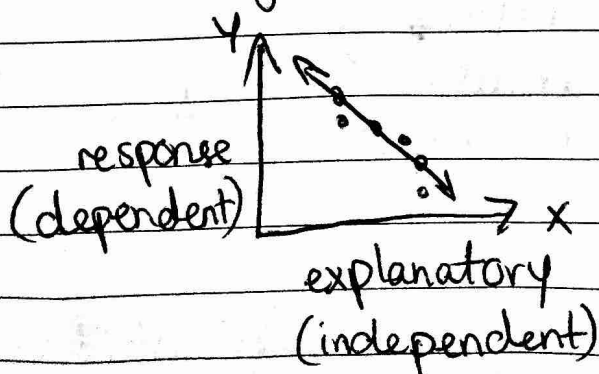 y
response
(dependent)
x
explanatory
(independent)